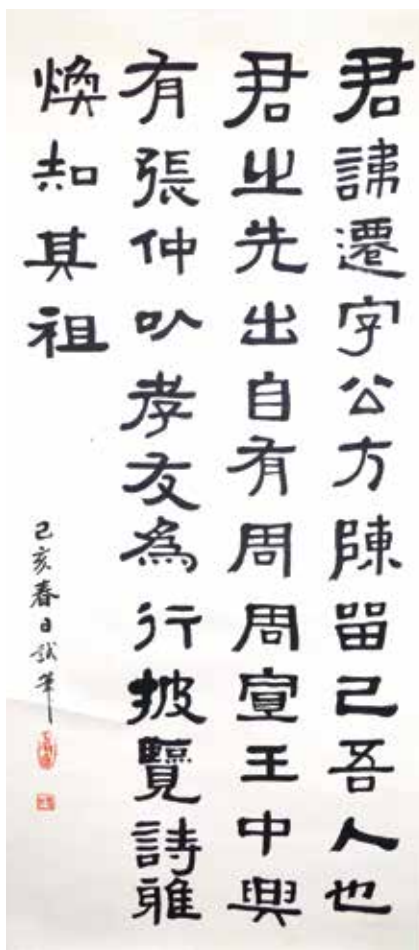 君諱遷字公方陳留己吾人也
君之先出自有周周宣王中興
有張仲以孝友為行披覽詩雅
煥知其祖
己亥春日試筆